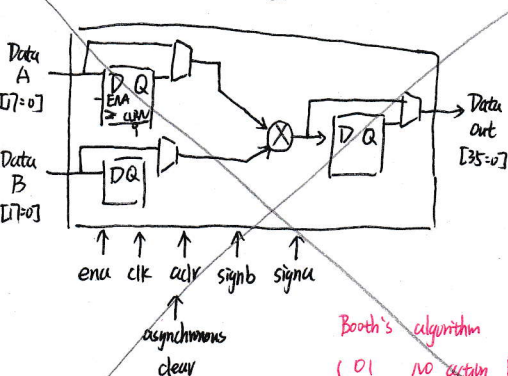 Data
A
[17=0]
D Q
ENA
CLRN
Data
B
[17=0]
D Q
X
D Q
Data
out
[35=0]
ena clk aclr signb signa
asynchronous
clear
Booth's algorithm
0 NO action